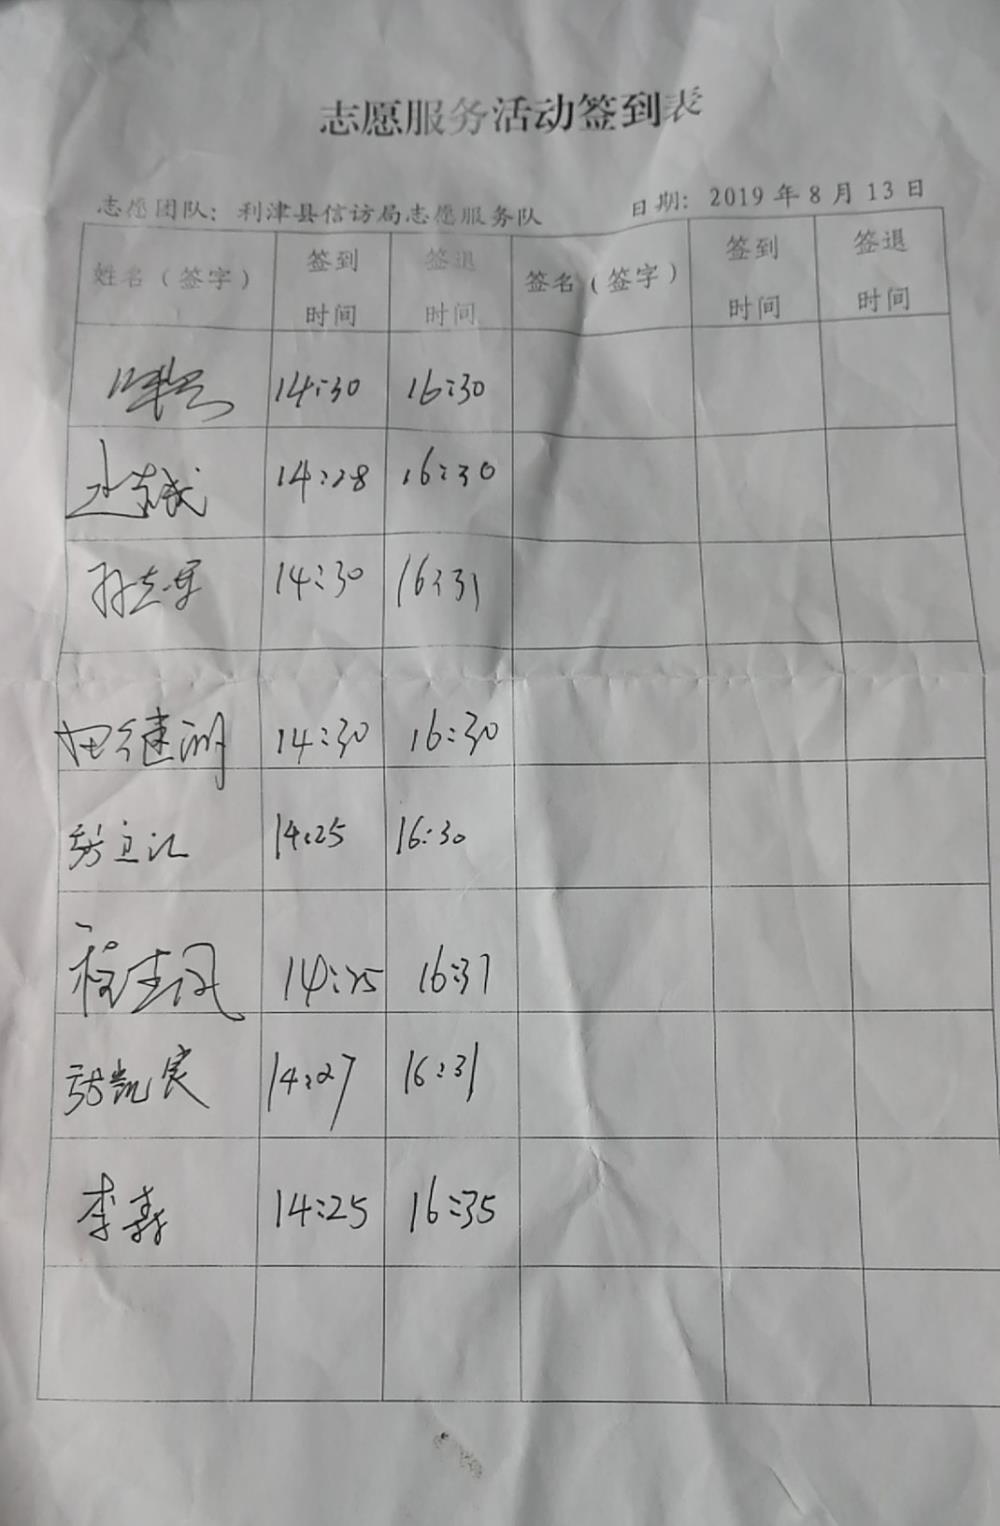 志愿服务活动签到表
志愿团队：利津县信访局志愿服务队 日期：2019年8月13日
姓名（签字） 签到时间 签退时间 签名（签字） 签到时间 签退时间
14:30 16:30
14:28 16:30
14:30 16:31
田继洲 14:30 16:30
张立 14:25 16:30
程 14:25 16:37
张凯宾 14:27 16:31
李 14:25 16:35